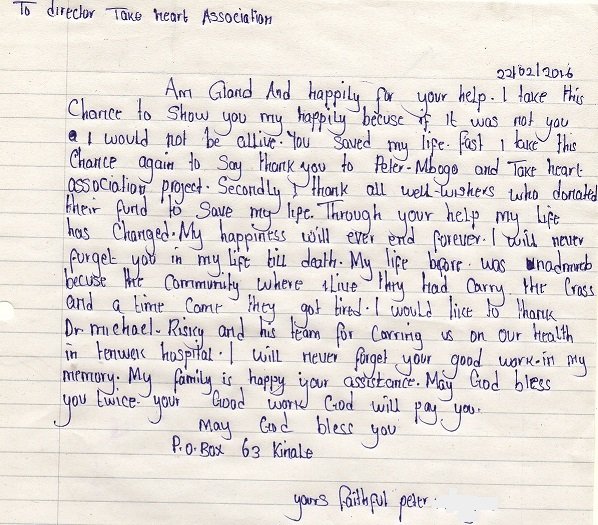 To director Take heart Association
22/02/2016
Am Gland And happily for your help. I take this
Chance to Show you my happily becuse if it was not you
I would not be allive. You Saved my life. fast I take this
Chance again to Say thank you to Peter-Mbogo and Take heart
association project. Secondly I thank all well-wishers who donated
their fund to Save my life. Through your help my life
has Changed. My happiness will ever end forever. I will never
furget you in my life till death. My life before was
becuse the Community where I live they had Carry the Cross
and a time Come they got tired. I would like to thank
Dr michael-Risky and his team for Carring us on our health
in tenwek hospital. I will never forget your good work-in my
memory. My family is happy your assistance. May God bless
you twice your Good work God will pay you.
May God bless you
P.O.Box 63 Kinale
yours faithful peter.